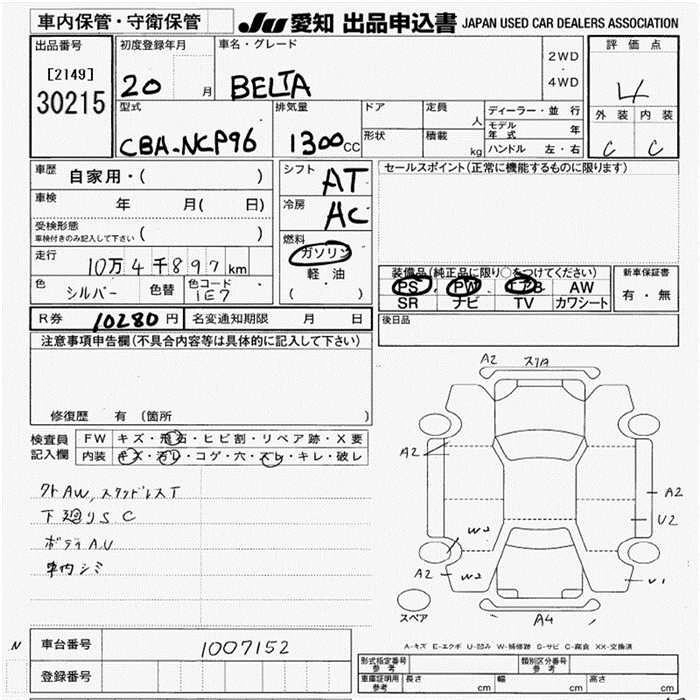 車内保管・守衛保管
JU 愛知 出品申込書 JAPAN USED CAR DEALERS ASSOCIATION
出品番号
[2149]
30215
初度登録年月
20 月
車名・グレード
BELTA
2WD
・
4WD
評価点
4
外装 内装
C C
型式
CBA-NCP96
排気量
1300 CC
ドア
定員
人
形状
積載
kg
ディーラー・並行
モデル年式 年
ハンドル 左・右
車歴
自家用・( )
車検
年 月( 日)
受検形態
車検付きのみ記入して下さい ( )
走行
10万4千897km
色
シルバー
色替
色コード
1E7
シフト
AT
冷房
AC
燃料
ガソリン
軽・油
( )
セールスポイント(正常に機能するものに限ります)
装備品(純正品に限り○をつけてください)
PS PW エアB AW
SR ナビ TV カワシート
新車保証書
有・無
R券 10280円
名変通知期限 月 日
後日品
注意事項申告欄(不具合内容等は具体的に記入して下さい)
修復歴 有(箇所 )
検査員
記入欄
FW キズ・飛石・ヒビ割・リペア跡・X要
内装 キズ・汚レ・コゲ・穴・スレ・キレ・破レ
外AW,スタッドレスT
下廻りS C
ボディAU
車内シミ
A2 スリA
A2
A2
U2
W2
A2 W2
U1
A4
スペア
A-キズ E-エクボ U-凹み W-補修跡 S-サビ C-腐食 XX-交換済
N
車台番号 1007152
登録番号
形式指定番号
参考
類別区分番号
参考
車庫証明用
参考
長さ cm 幅 cm 高さ cm